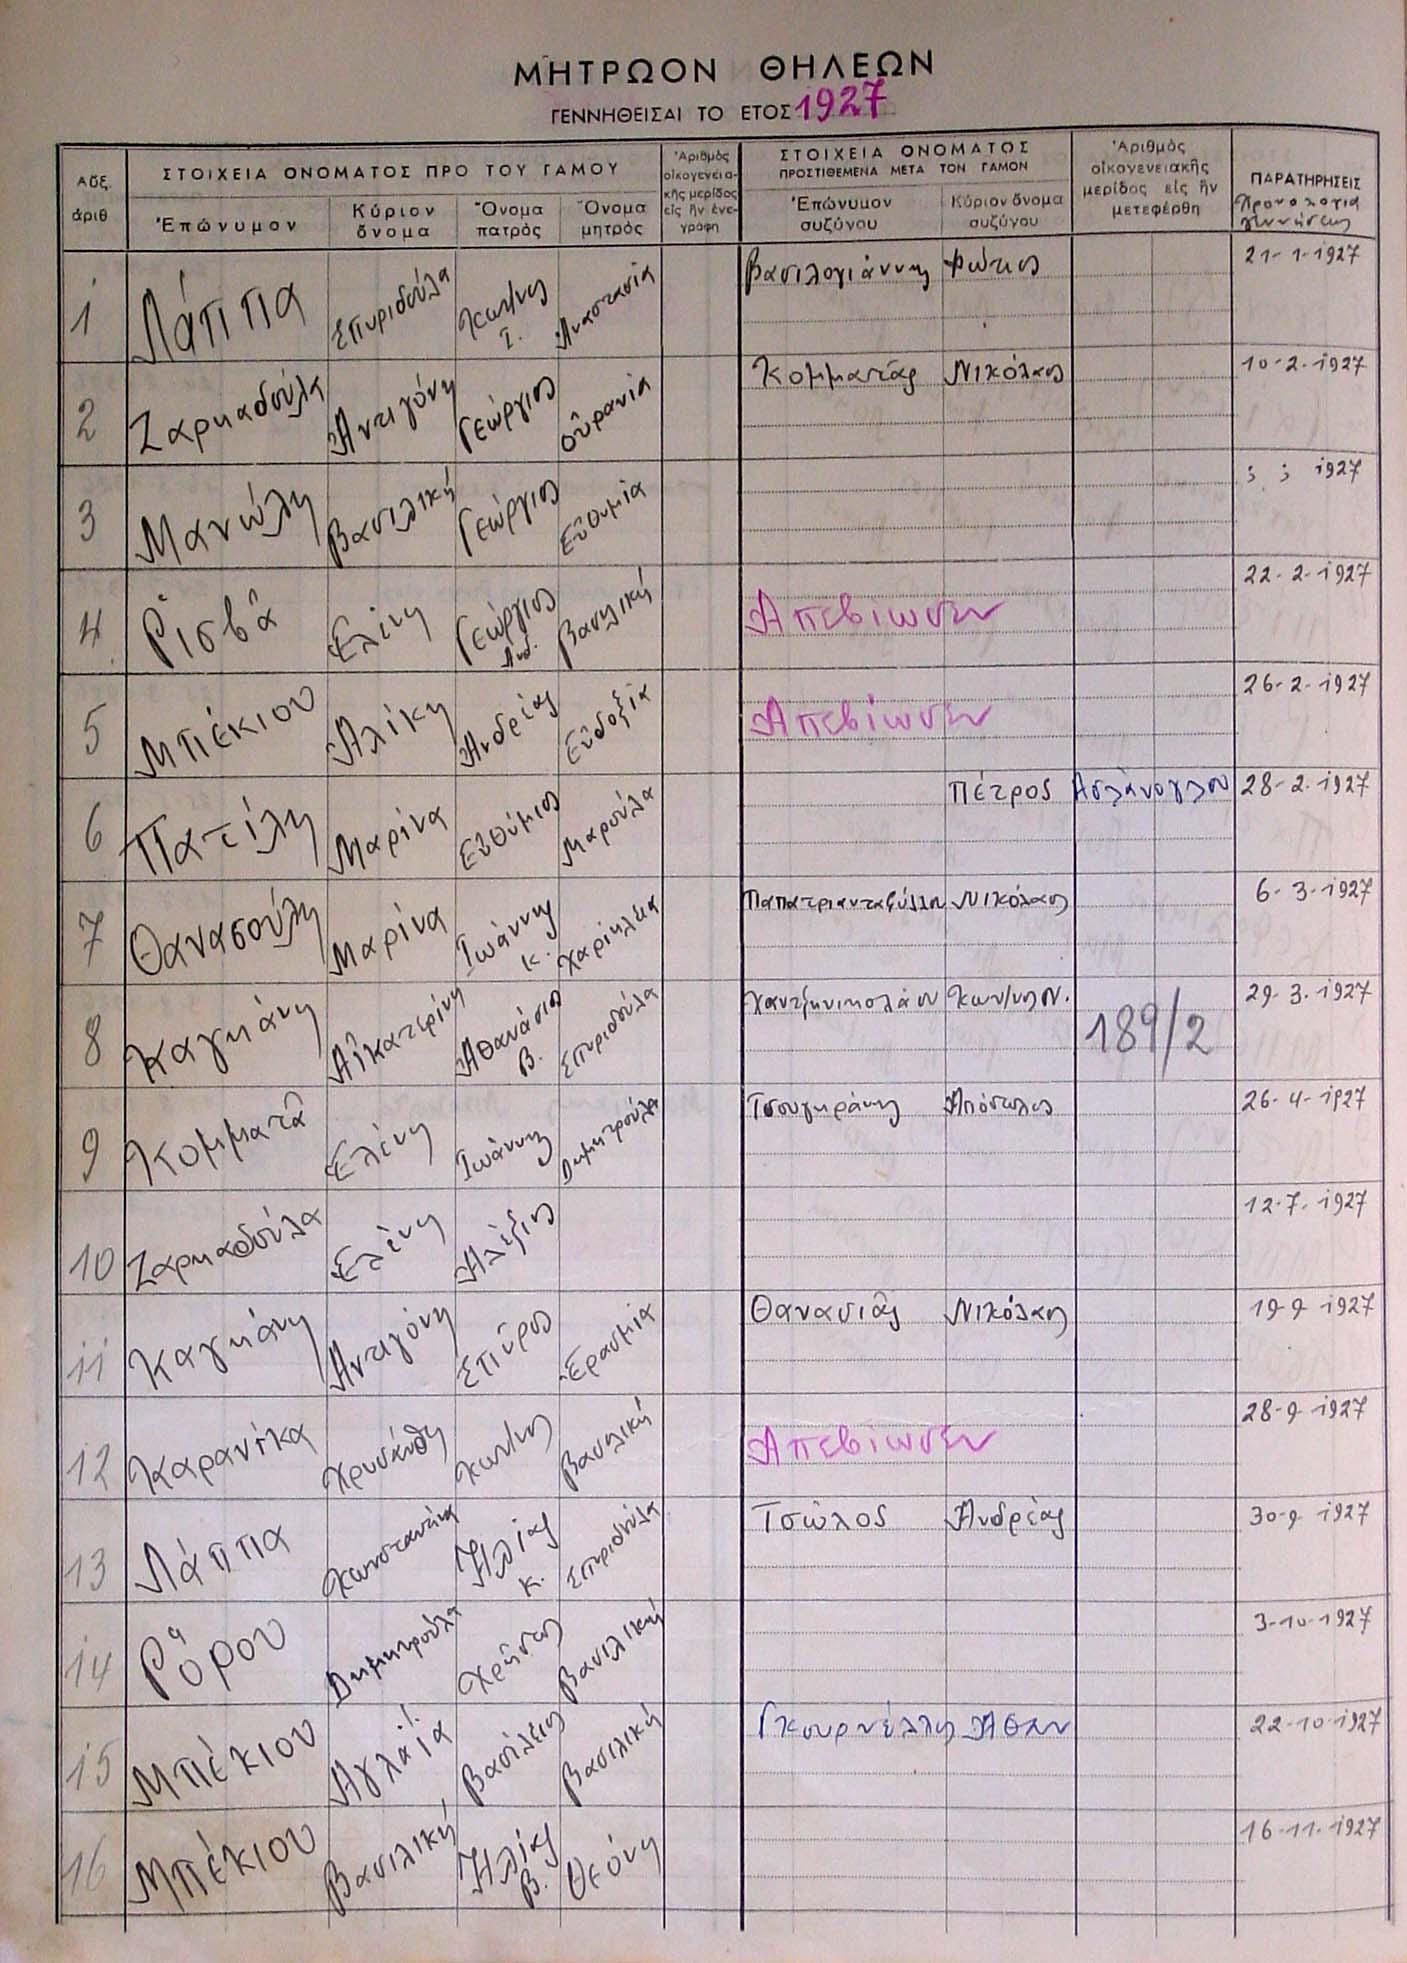 ΜΗΤΡΩΟΝ ΘΗΛΕΩΝ
ΓΕΝΝΗΘΕΙΣΑΙ ΤΟ ΕΤΟΣ 1927
Αὔξ. ἀριθ
ΣΤΟΙΧΕΙΑ ΟΝΟΜΑΤΟΣ ΠΡΟ ΤΟΥ ΓΑΜΟΥ
Ἐπώνυμον
Κύριον ὄνομα
Ὄνομα πατρός
Ὄνομα μητρός
Ἀριθμὸς οἰκογενεια-κῆς μερίδος εἰς ἣν ἐνε-γράφη
ΣΤΟΙΧΕΙΑ ΟΝΟΜΑΤΟΣ
ΠΡΟΣΤΙΘΕΜΕΝΑ ΜΕΤΑ ΤΟΝ ΓΑΜΟΝ
Ἐπώνυμον συζύγου
Κύριον ὄνομα συζύγου
Ἀριθμὸς οἰκογενειακῆς μερίδος εἰς ἣν μετεφέρθη
ΠΑΡΑΤΗΡΗΣΕΙΣ
Χρονολογία γεννήσεως
1 Λάππα Σπυριδούλα Κων/νος Ι. Ἀναστασία Βασιλογιάννης Φώτιος 21-1-1927
2 Ζαρκαδούλα Ἀντιγόνη Γεώργιος Οὐρανία Κομματᾶς Νικόλαος 10-2-1927
3 Μανώλη Βασιλική Γεώργιος Εὐθυμία ; ; 1927
4 Ρἱσβᾶ Ελένη Γεώργιος Ἀνδ. Βασιλική Απεβίωσεν 22-2-1927
5 Μπέκιου Ἀλίκη Ἀνδρέας Εὐδοξία Απεβίωσεν 26-2-1927
6 Πατίλη Μαρίνα Εὐθύμιος Μαρούλα Πέτρος Ασλάνογλου 28-2-1927
7 Θανασούλη Μαρίνα Ἰωάννης Κ. Χαρίκλεια Παπατριανταφύλλου Νικόλαος 6-3-1927
8 Καγκάνη Αἰκατερίνη Ἀθανάσιος Β. Σπυριδούλα Χαντζηνικολάου Κων/νος Ν. 189/2 29-3-1927
9 Κομματᾶ Ελένη Ἰωάννης Δημητρούλα Τσουγκράνης Ἀπόστολος 26-4-1927
10 Ζαρκαδούλα Ελένη Ἀλέξιος 12-7-1927
11 Καγκάνη Ἀντιγόνη Σπῦρος Ἐρασμία Θανασιᾶς Νικόλαος 19-9 1927
12 Καρανίκα Χρυσάνθη Κων/νος Βασιλική Απεβίωσεν 28-9-1927
13 Λάππα Κωνσταντίνα Ἠλίας Κ. Σπυριδούλα Τσώλος Ἀνδρέας 30-9 1927
14 Ρὁρου Δημητρούλα Χρῆστος Βασιλική 3-10-1927
15 Μπέκιου Ἀγλαΐα Βασίλειος Βασιλική Γκουρνέλλης Ἀθαν 22-10-1927
16 Μπέκιου Βασιλική Ἠλίας Β. Θεόνη 16-11-1927